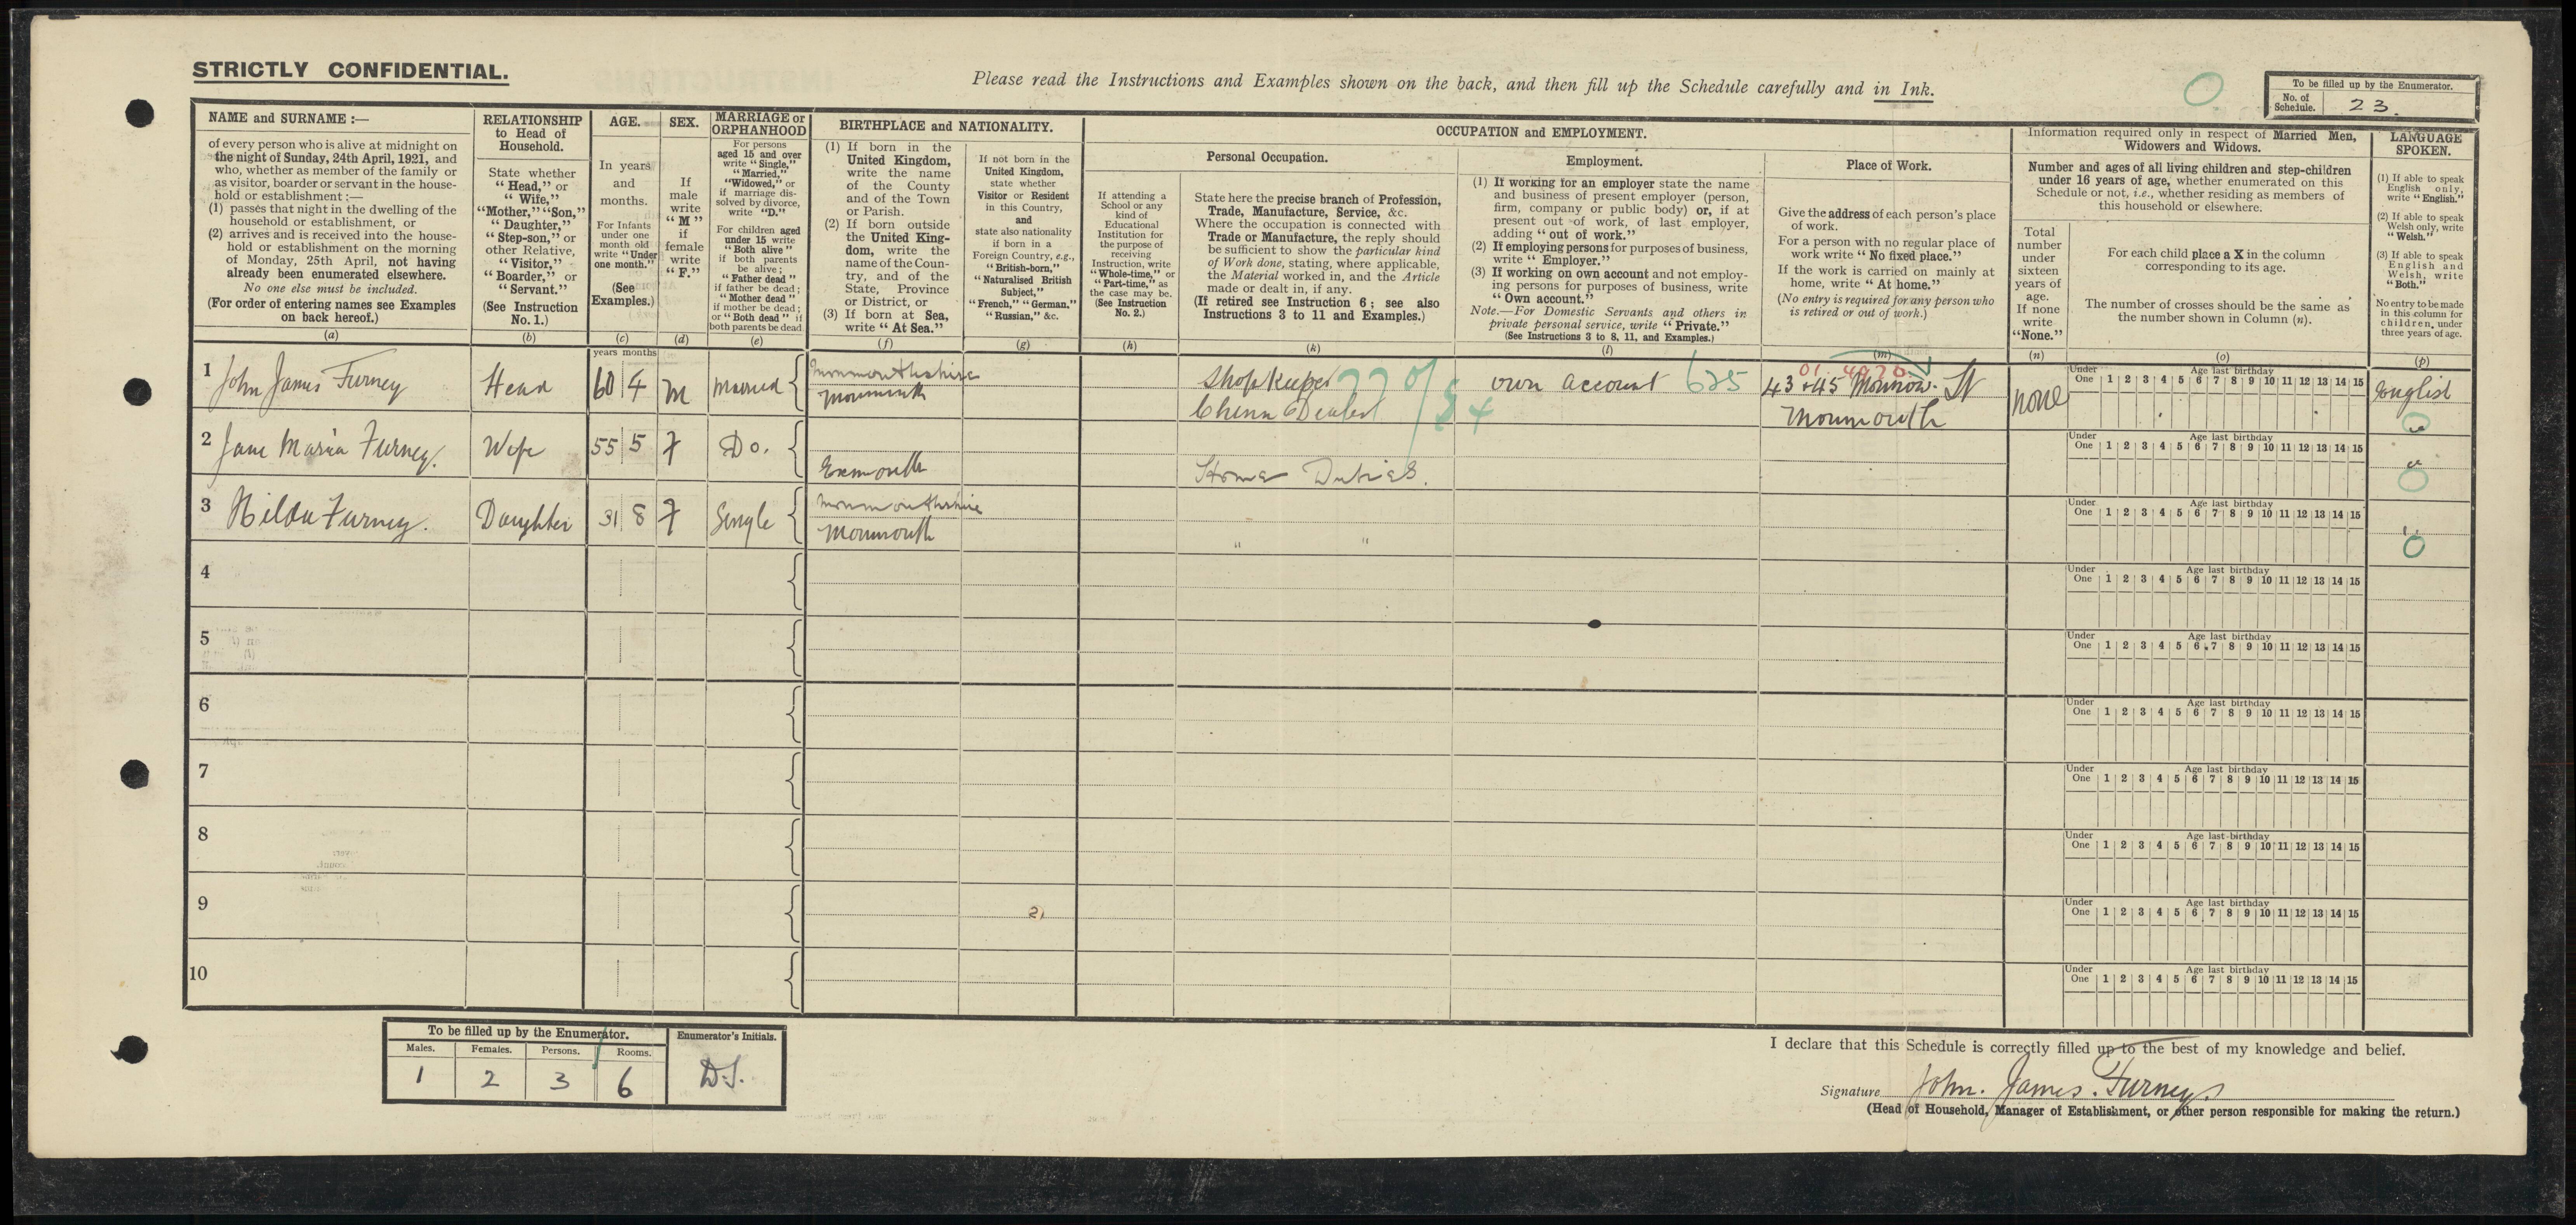 STRICTLY CONFIDENTIAL.
Please read the Instructions and Examples shown on the back, and then fill up the Schedule carefully and in Ink.
To be filled up by the Enumerator.
No. of Schedule. 23.
NAME and SURNAME :—
of every person who is alive at midnight on
the night of Sunday, 24th April, 1921, and
who, whether as member of the family or
as visitor, boarder or servant in the house-
hold or establishment :—
(1) passes that night in the dwelling of the
household or establishment, or
(2) arrives and is received into the house-
hold or establishment on the morning
of Monday, 25th April, not having
already been enumerated elsewhere.
No one else must be included.
(For order of entering names see Examples
on back hereof.)
(a)
RELATIONSHIP
to Head of
Household.
State whether
"Head," or
"Wife,"
"Mother," "Son,"
"Daughter,"
"Step-son," or
other Relative,
"Visitor,"
"Boarder," or
"Servant."
(See Instruction
No. 1.)
(b)
AGE.
In years
and
months.
For Infants
under one
month old
write "Under
one month."
(See
Examples.)
(c)
SEX.
If
male
write
"M"
if
female
write
"F."
(d)
MARRIAGE or
ORPHANHOOD
For persons
aged 15 and over
write "Single,"
"Married,"
"Widowed," or
if marriage dis-
solved by divorce,
write "D."
For children aged
under 15 write
"Both alive"
if both parents
be alive;
"Father dead"
if father be dead;
"Mother dead"
if mother be dead;
or "Both dead" if
both parents be dead
(e)
BIRTHPLACE and NATIONALITY.
(1) If born in the
United Kingdom,
write the name
of the County
and of the Town
or Parish.
(2) If born outside
the United King-
dom, write the
name of the Coun-
try, and of the
State, Province
or District, or
(3) If born at Sea,
write "At Sea."
(f)
If not born in the
United Kingdom,
state whether
Visitor or Resident
in this Country,
and
state also nationality
if born in a
Foreign Country, e.g.,
"British-born,"
"Naturalised British
Subject,"
"French," "German."
"Russian," &c.
(g)
OCCUPATION and EMPLOYMENT.
If attending a
School or any
kind of
Educational
Institution for
the purpose of
receiving
Instruction, write
"Whole-time," or
"Part-time," as
the case may be.
(See Instruction
No. 2.)
(h)
Personal Occupation.
State here the precise branch of Profession,
Trade, Manufacture, Service, &c.
Where the occupation is connected with
Trade or Manufacture, the reply should
be sufficient to show the particular kind
of Work done, stating, where applicable,
the Material worked in, and the Article
made or dealt in, if any.
(If retired see Instruction 6; see also
Instructions 3 to 11 and Examples.)
(k)
Employment.
(1) If working for an employer state the name
and business of present employer (person,
firm, company or public body) or, if at
present out of work, of last employer,
adding "out of work."
(2) If employing persons for purposes of business,
write "Employer."
(3) If working on own account and not employ-
ing persons for purposes of business, write
"Own account."
Note.—For Domestic Servants and others in
private personal service, write "Private."
(See Instructions 3 to 8, 11, and Examples.)
(l)
Place of Work.
Give the address of each person's place
of work.
For a person with no regular place of
work write "No fixed place."
If the work is carried on mainly at
home, write "At home."
(No entry is required for any person who
is retired or out of work.)
(m)
Information required only in respect of Married Men,
Widowers and Widows.
Number and ages of all living children and step-children
under 16 years of age, whether enumerated on this
Schedule or not, i.e., whether residing as members of
this household or elsewhere.
Total
number
under
sixteen
years of
age.
If none
write
"None."
(n)
For each child place a X in the column
corresponding to its age.
The number of crosses should be the same as
the number shown in Column (n).
(o)
LANGUAGE
SPOKEN.
(1) If able to speak
English only,
write "English."
(2) If able to speak
Welsh only, write
"Welsh."
(3) If able to speak
English and
Welsh, write
"Both."
No entry to be made
in this column for
children, under
three years of age.
(p)
years months
1 John James Furney Head 60 4 M Married Monmouthshire Monmouth Shop Keeper China Dealer 770/54 own account 625 43 + 45 Monnow St Monmouth none English
Under One Age last birthday 1 2 3 4 5 6 7 8 9 10 11 12 13 14 15
2 Jane Maria Furney. Wife 55 5 F Do. Exmouth Home Duties. "
Under One Age last birthday 1 2 3 4 5 6 7 8 9 10 11 12 13 14 15
3 Hilda Furney. Daughter 31 8 F Single Monmouthshire Monmouth " " "
Under One Age last birthday 1 2 3 4 5 6 7 8 9 10 11 12 13 14 15
4
Under One Age last birthday 1 2 3 4 5 6 7 8 9 10 11 12 13 14 15
5
Under One Age last birthday 1 2 3 4 5 6 7 8 9 10 11 12 13 14 15
6
Under One Age last birthday 1 2 3 4 5 6 7 8 9 10 11 12 13 14 15
7
Under One Age last birthday 1 2 3 4 5 6 7 8 9 10 11 12 13 14 15
8
Under One Age last birthday 1 2 3 4 5 6 7 8 9 10 11 12 13 14 15
9
Under One Age last birthday 1 2 3 4 5 6 7 8 9 10 11 12 13 14 15
10
Under One Age last birthday 1 2 3 4 5 6 7 8 9 10 11 12 13 14 15
To be filled up by the Enumerator.
Males. Females. Persons. Rooms.
1 2 3 6
Enumerator's Initials.
D.S.
I declare that this Schedule is correctly filled up to the best of my knowledge and belief.
Signature John. James. Furney.
(Head of Household, Manager of Establishment, or other person responsible for making the return.)